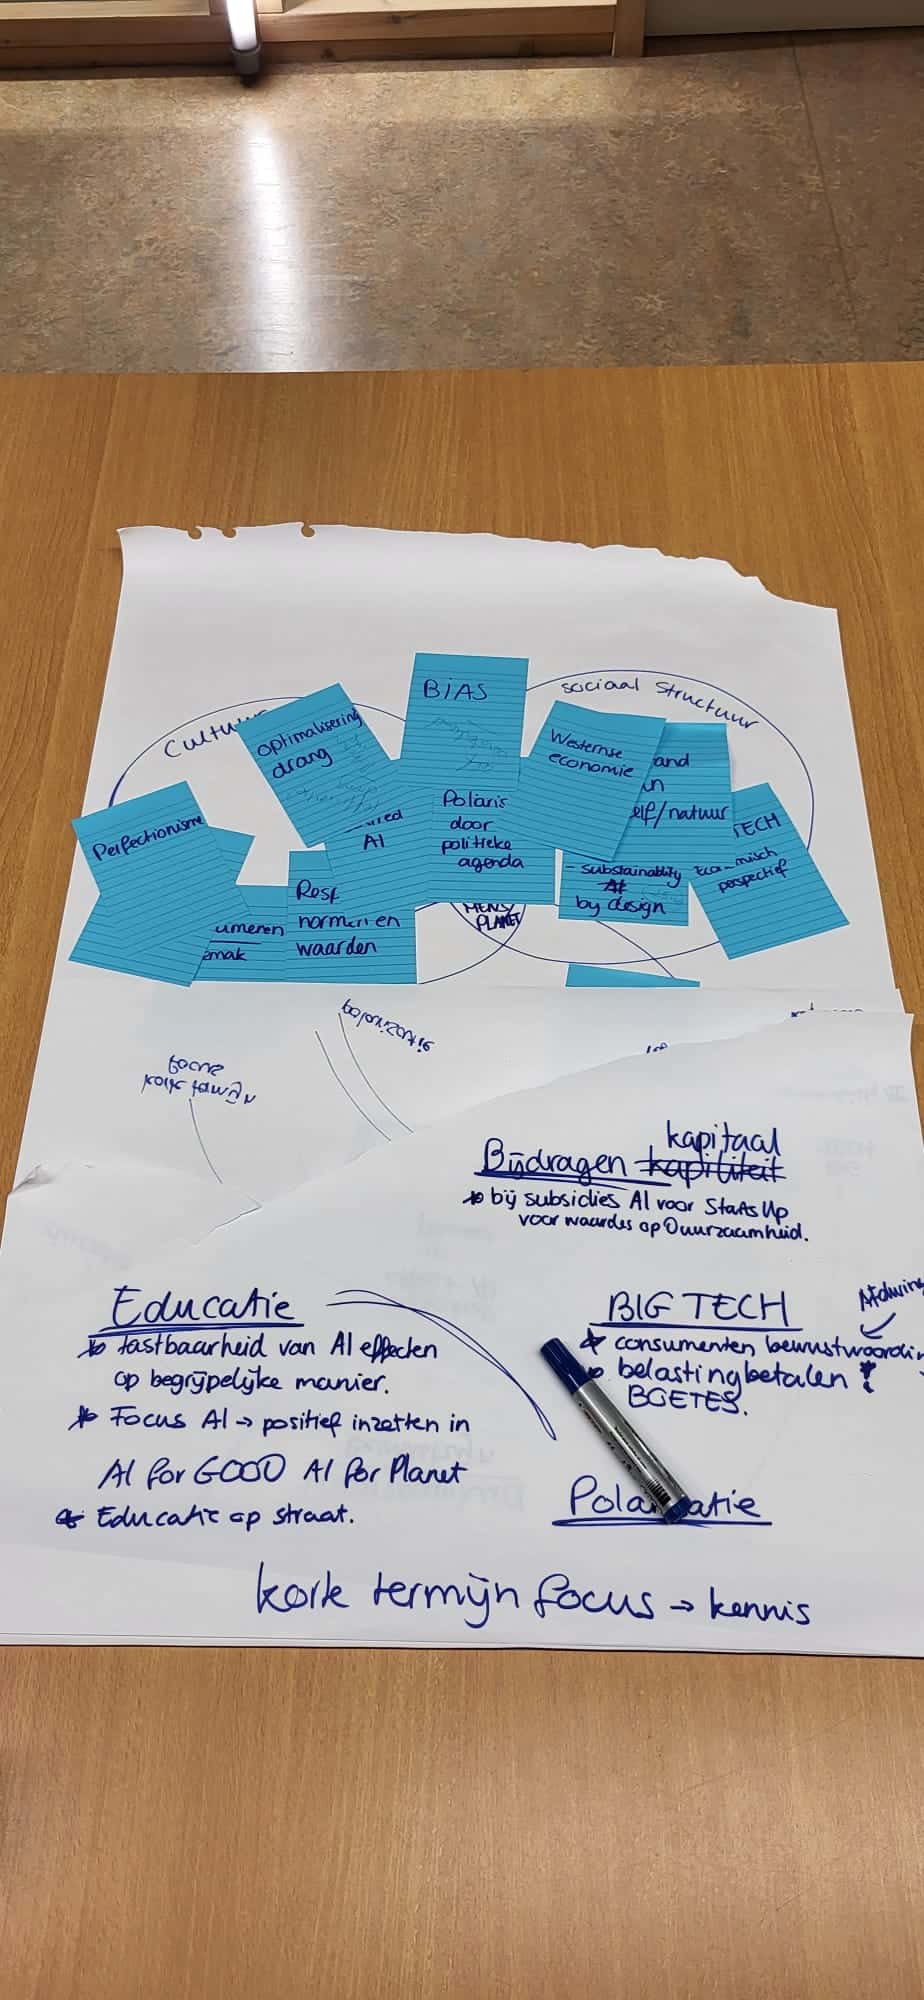 sociaal Structuur
BiAS
optimalisering
drang
Westernse
economie
and
Perfectionisme
Polaris
door
politieke
agenda
elf/natuur
TECH
AI
perspectief
substainablity
AI
by design
normen en
waarden
umeren
emak
MENS
PLANET
focus
korte termijn
kapitaal
Bijdragen kapiliteit
bij subsidies AI voor StartsUp
voorwaardes op Duurzaamheid.
Educatie
tastbaarheid van AI effecten
op begrijpelijke manier.
Focus AI → positief inzetten in
AI for GOOD AI for Planet
Educatie op straat.
BIG TECH
consumenten bewustwoordin
belastingbetalen !
BOETES.
korte termijn focus → kennis